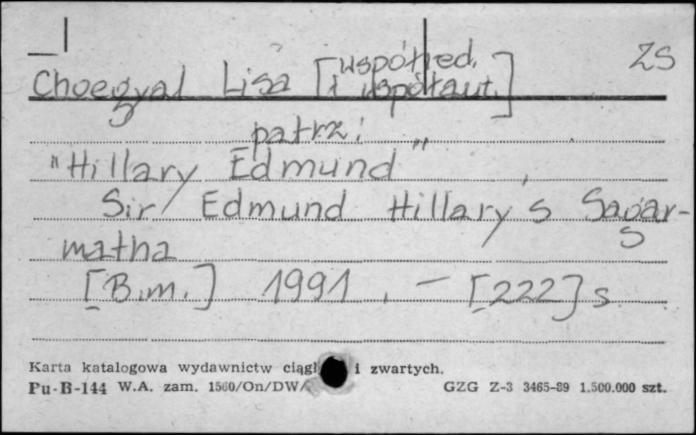 ZS
Choegyal Lisa [współred.
i współaut.]
patrz:
"Hillary Edmund"
Sir Edmund Hillary's Sagar-
matha
[B.m.] 1991. - [222] s
Karta katalogowa wydawnictw ciągł i zwartych.
Pu-B-144 W.A. zam. 1560/On/DW/ GZG Z-3 3465-89 1.500.000 szt.